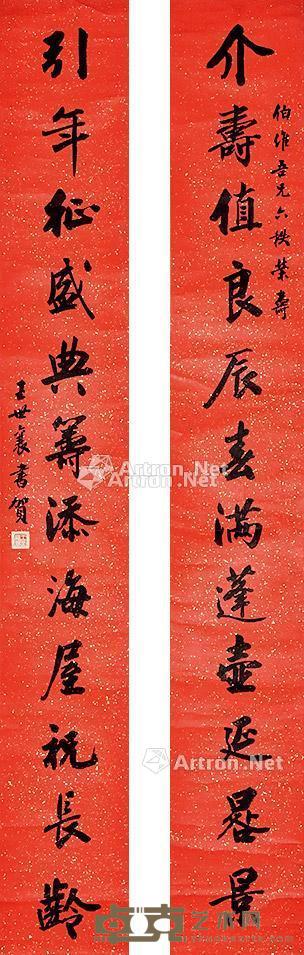 介壽值良辰春满蓬壺延晷景
伯維吾兄六秩榮壽
引年征盛典籌添海屋祝長齡
王世襄書賀
Artron.Net
Artron.Net
Artron.Net
Artron.Net
艺术网